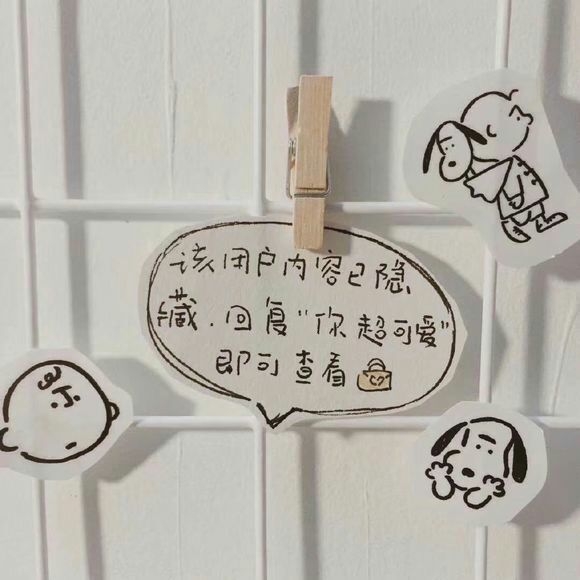 该用户内容已隐
藏.回复"你超可爱"
即可查看